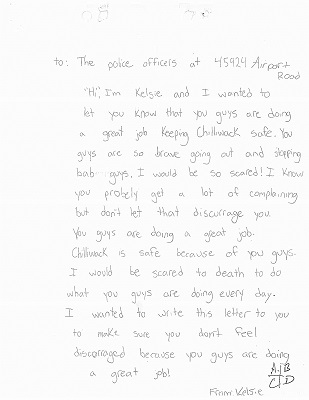 to: The police officers at 45924 Airport
Road
"Hi", I'm Kelsie and I wanted to
let you know that you guys are doing
a great job keeping Chilliwack safe. You
guys are so brave going out and stopping
bab guys. I would be so scared! I know
you probely get a lot of complaining
but don't let that discurrage you.
You guys are doing a great job.
Chilliwack is safe because of you guys.
I would be scared to death to do
what you guys are doing every day.
I wanted to write this letter to you
to make sure you don't feel
discorraged because you guys are doing
a great job!
A B
C D
From: Kelsie